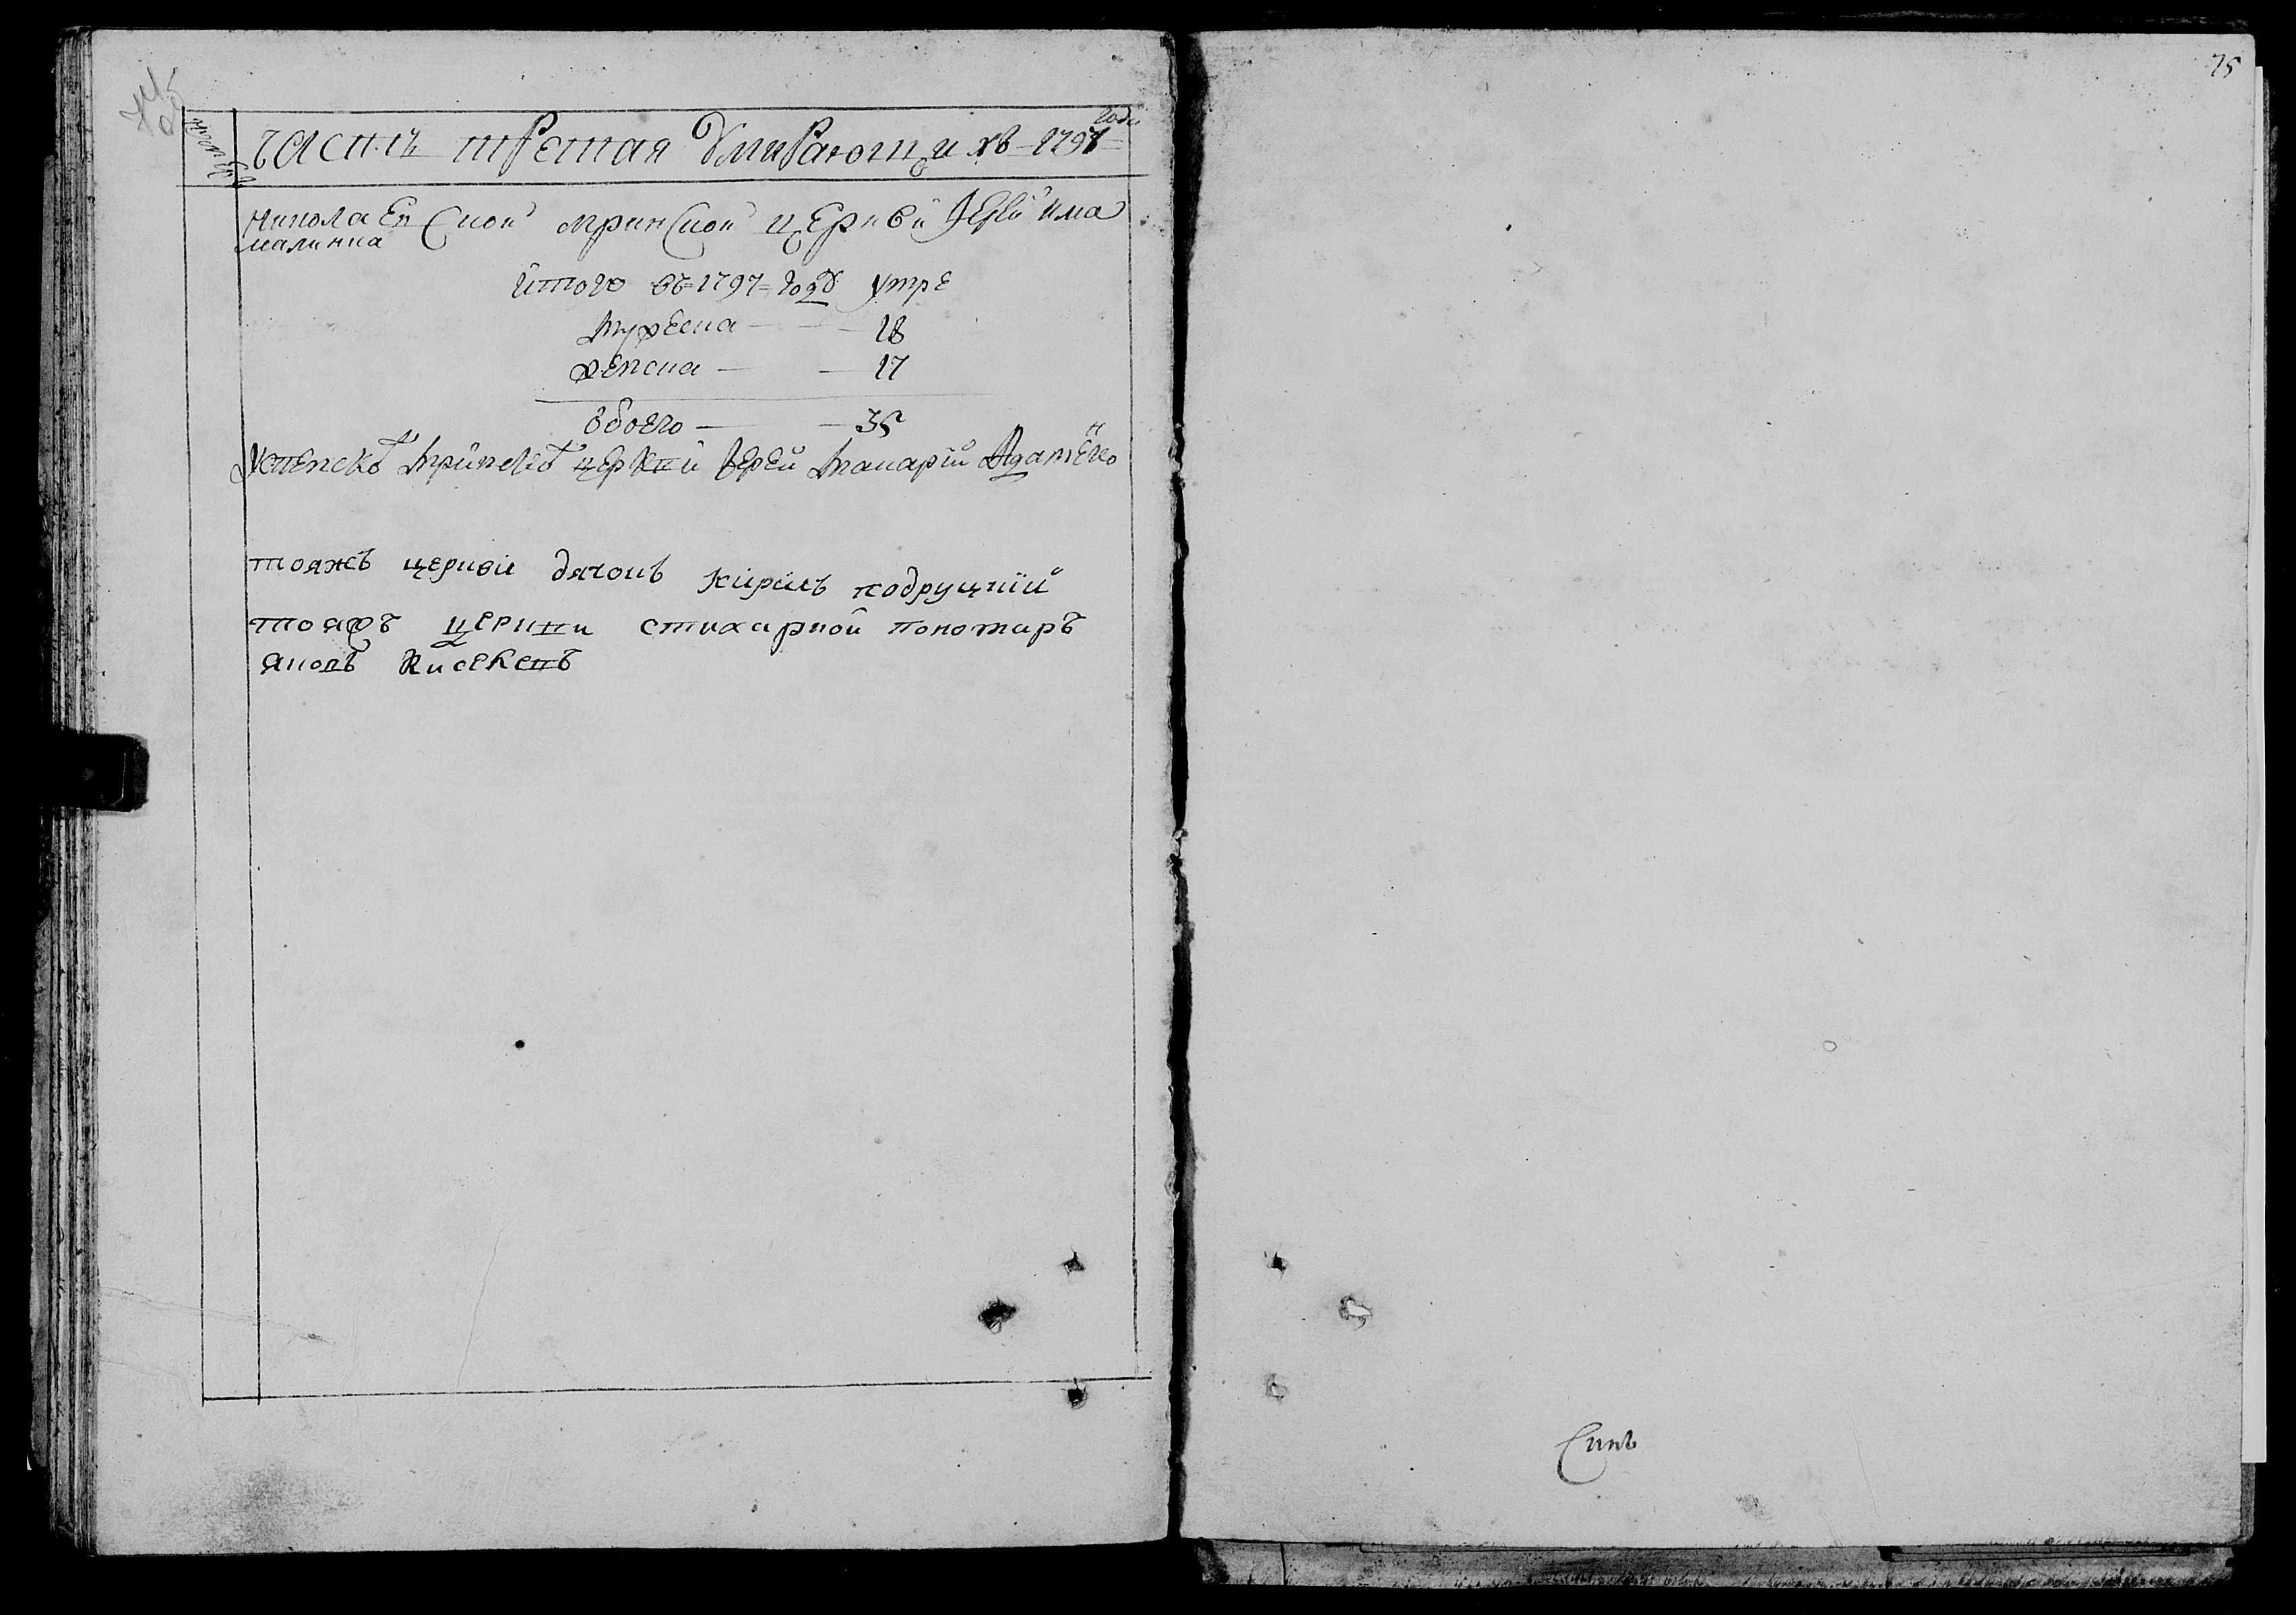 года
часть третая Умирающихъ 1797
Николаевской мринской церкви Іерей има
малинка
итого въ=1797=году умре
мужеска — 18
женска — 17
обоего — 35
Успенской мринской церкви Іерей Макарій Адаменко
тояжъ церкви дячокъ Кирилъ подруцкій
тояжъ церкви стихарной пономаръ
яковъ Кисекевъ
75